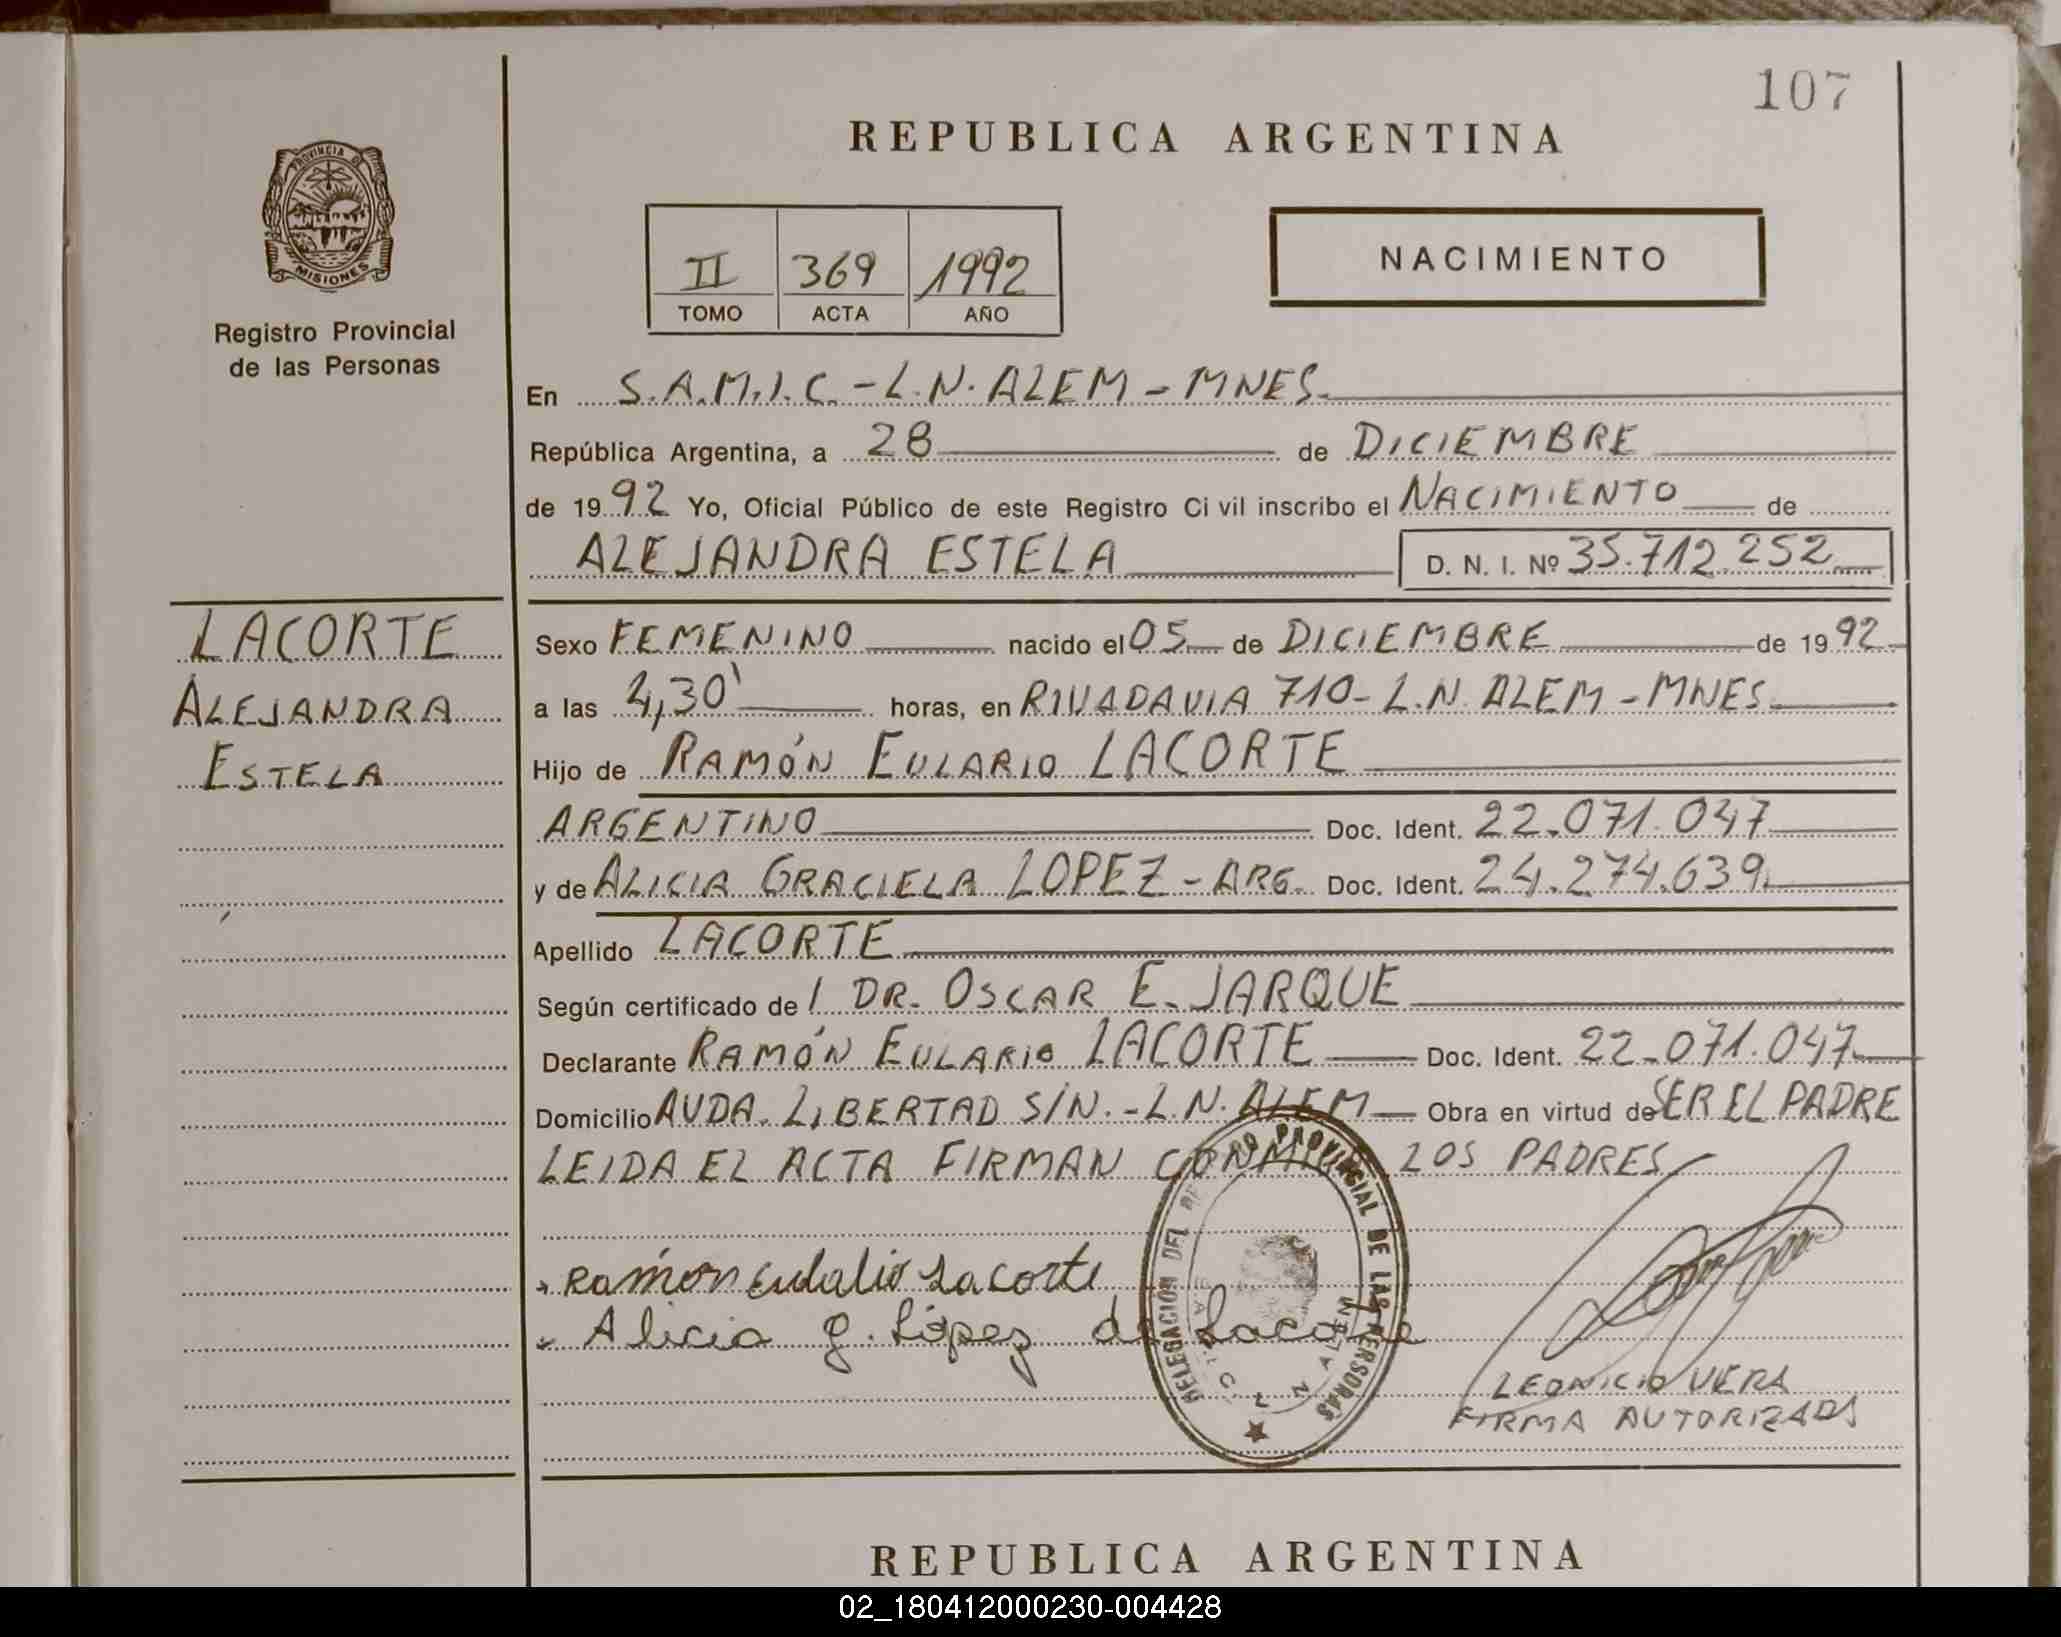 107
REPUBLICA ARGENTINA
PROVINCIA DE
MISIONES
Registro Provincial
de las Personas
II 369 1992
TOMO ACTA AÑO
NACIMIENTO
En S.A.M.I.C. - L.N. ALEM - MNES.
República Argentina, a 28 de DICIEMBRE
de 1992 Yo, Oficial Público de este Registro Ci vil inscribo el NACIMIENTO de
ALEJANDRA ESTELA D. N. I. Nº 35.712.252
LACORTE
ALEJANDRA
ESTELA
Sexo FEMENINO nacido el 05 de DICIEMBRE de 1992
a las 4,30' horas, en RIVADAVIA 710 - L.N. ALEM - MNES
Hijo de RAMÓN EULARIO LACORTE
ARGENTINO Doc. Ident. 22.071.047
y de ALICIA GRACIELA LOPEZ - ARG. Doc. Ident. 24.274.639
Apellido LACORTE
Según certificado de / DR. OSCAR E. JARQUE
Declarante RAMÓN EULARIO LACORTE Doc. Ident. 22.071.047
Domicilio AVDA. LIBERTAD S/N. - L.N. ALEM Obra en virtud de SER EL PADRE
LEIDA EL ACTA FIRMAN CONMIGO LOS PADRES
Ramón Eulalio Lacorte
Alicia G. López de Lacorte
DELEGACION DEL REGISTRO PROVINCIAL DE LAS PERSONAS
L N ALEM
LEONICIO VERA
FIRMA AUTORIZADA
REPUBLICA ARGENTINA
02_180412000230-004428